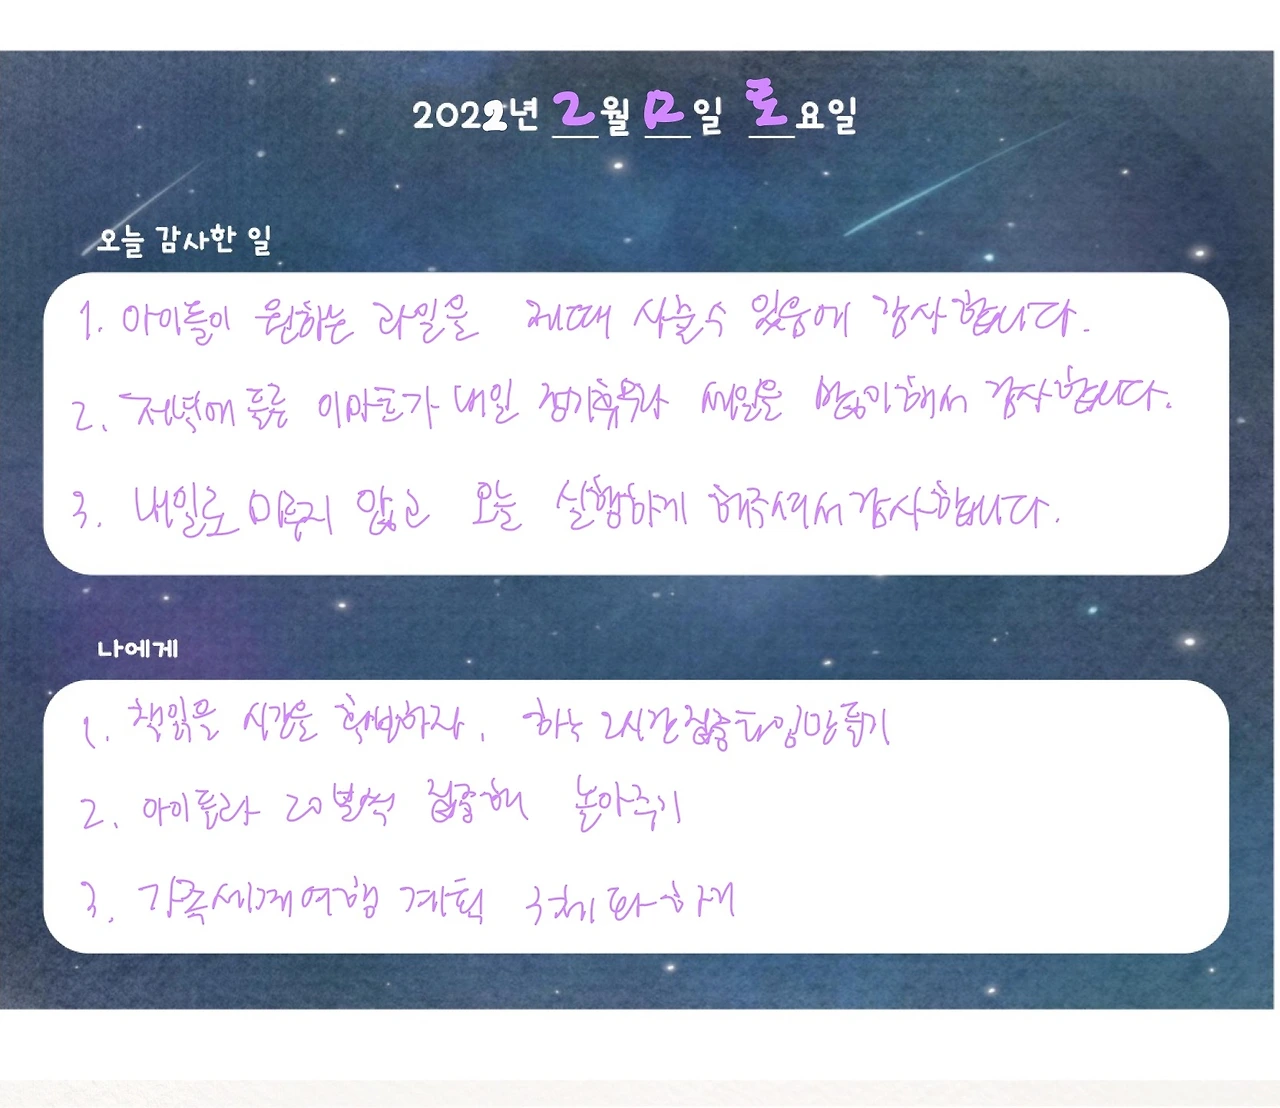 2022년 2월 12일 토요일
오늘 감사한 일
1. 아이들이 원하는 과일을 제때 사줄수 있음에 감사합니다.
2. 저녁에 들른 이마트가 내일 정기휴무라 세일을 많이해서 감사합니다.
3. 내일로 미루지 않고 오늘 실행하게 해주셔서 감사합니다.
나에게
1. 책읽을 시간을 확보하자. 하루 2시간 집중타임만들기
2. 아이들과 20분씩 집중해 놀아주기
3. 가족세계여행 계획 구체화하기